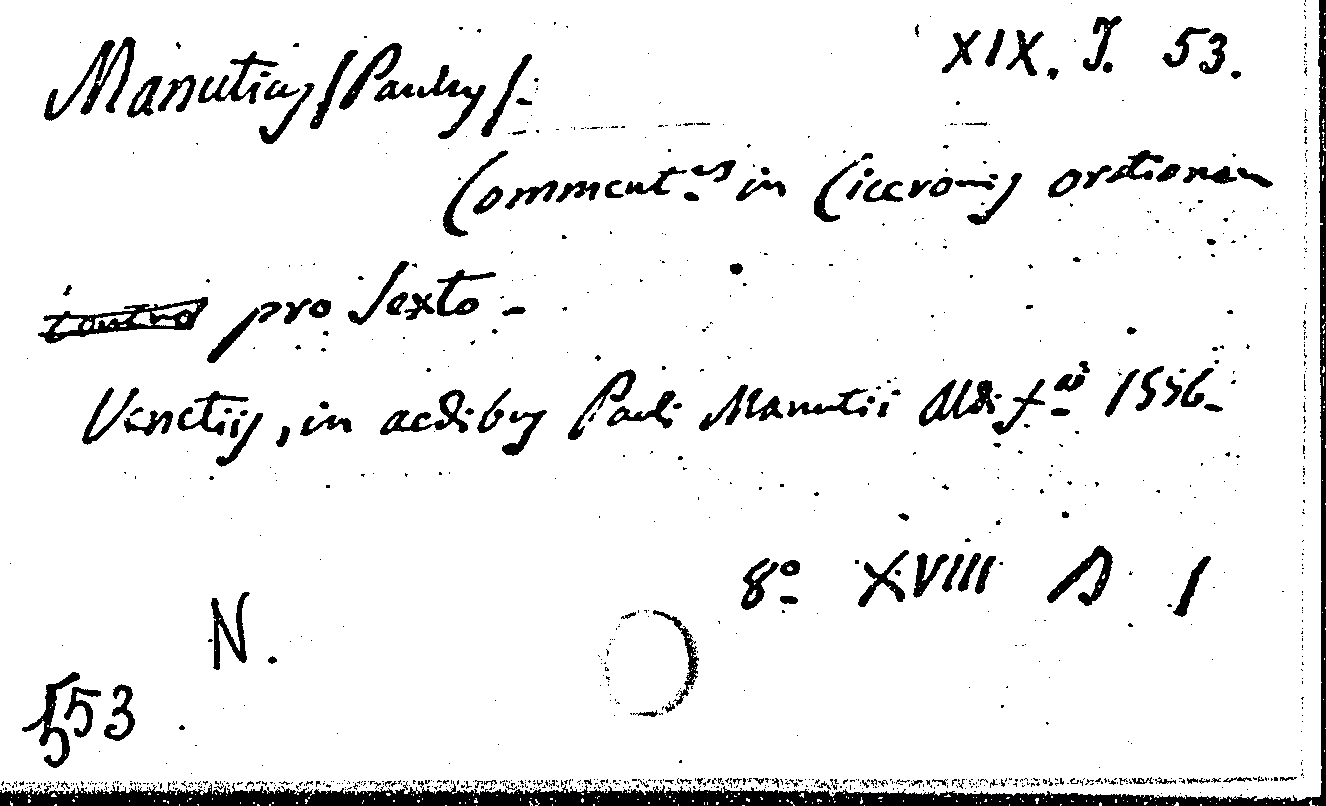 Manutius (Paulus). XIX. J. 53.
Comment.us in Ciceronis orationem
contra pro Sexto.
Venetiis, in aedibus Pauli Manutii Aldi f.ii 1556.
8º XVIII D 1
N.
553